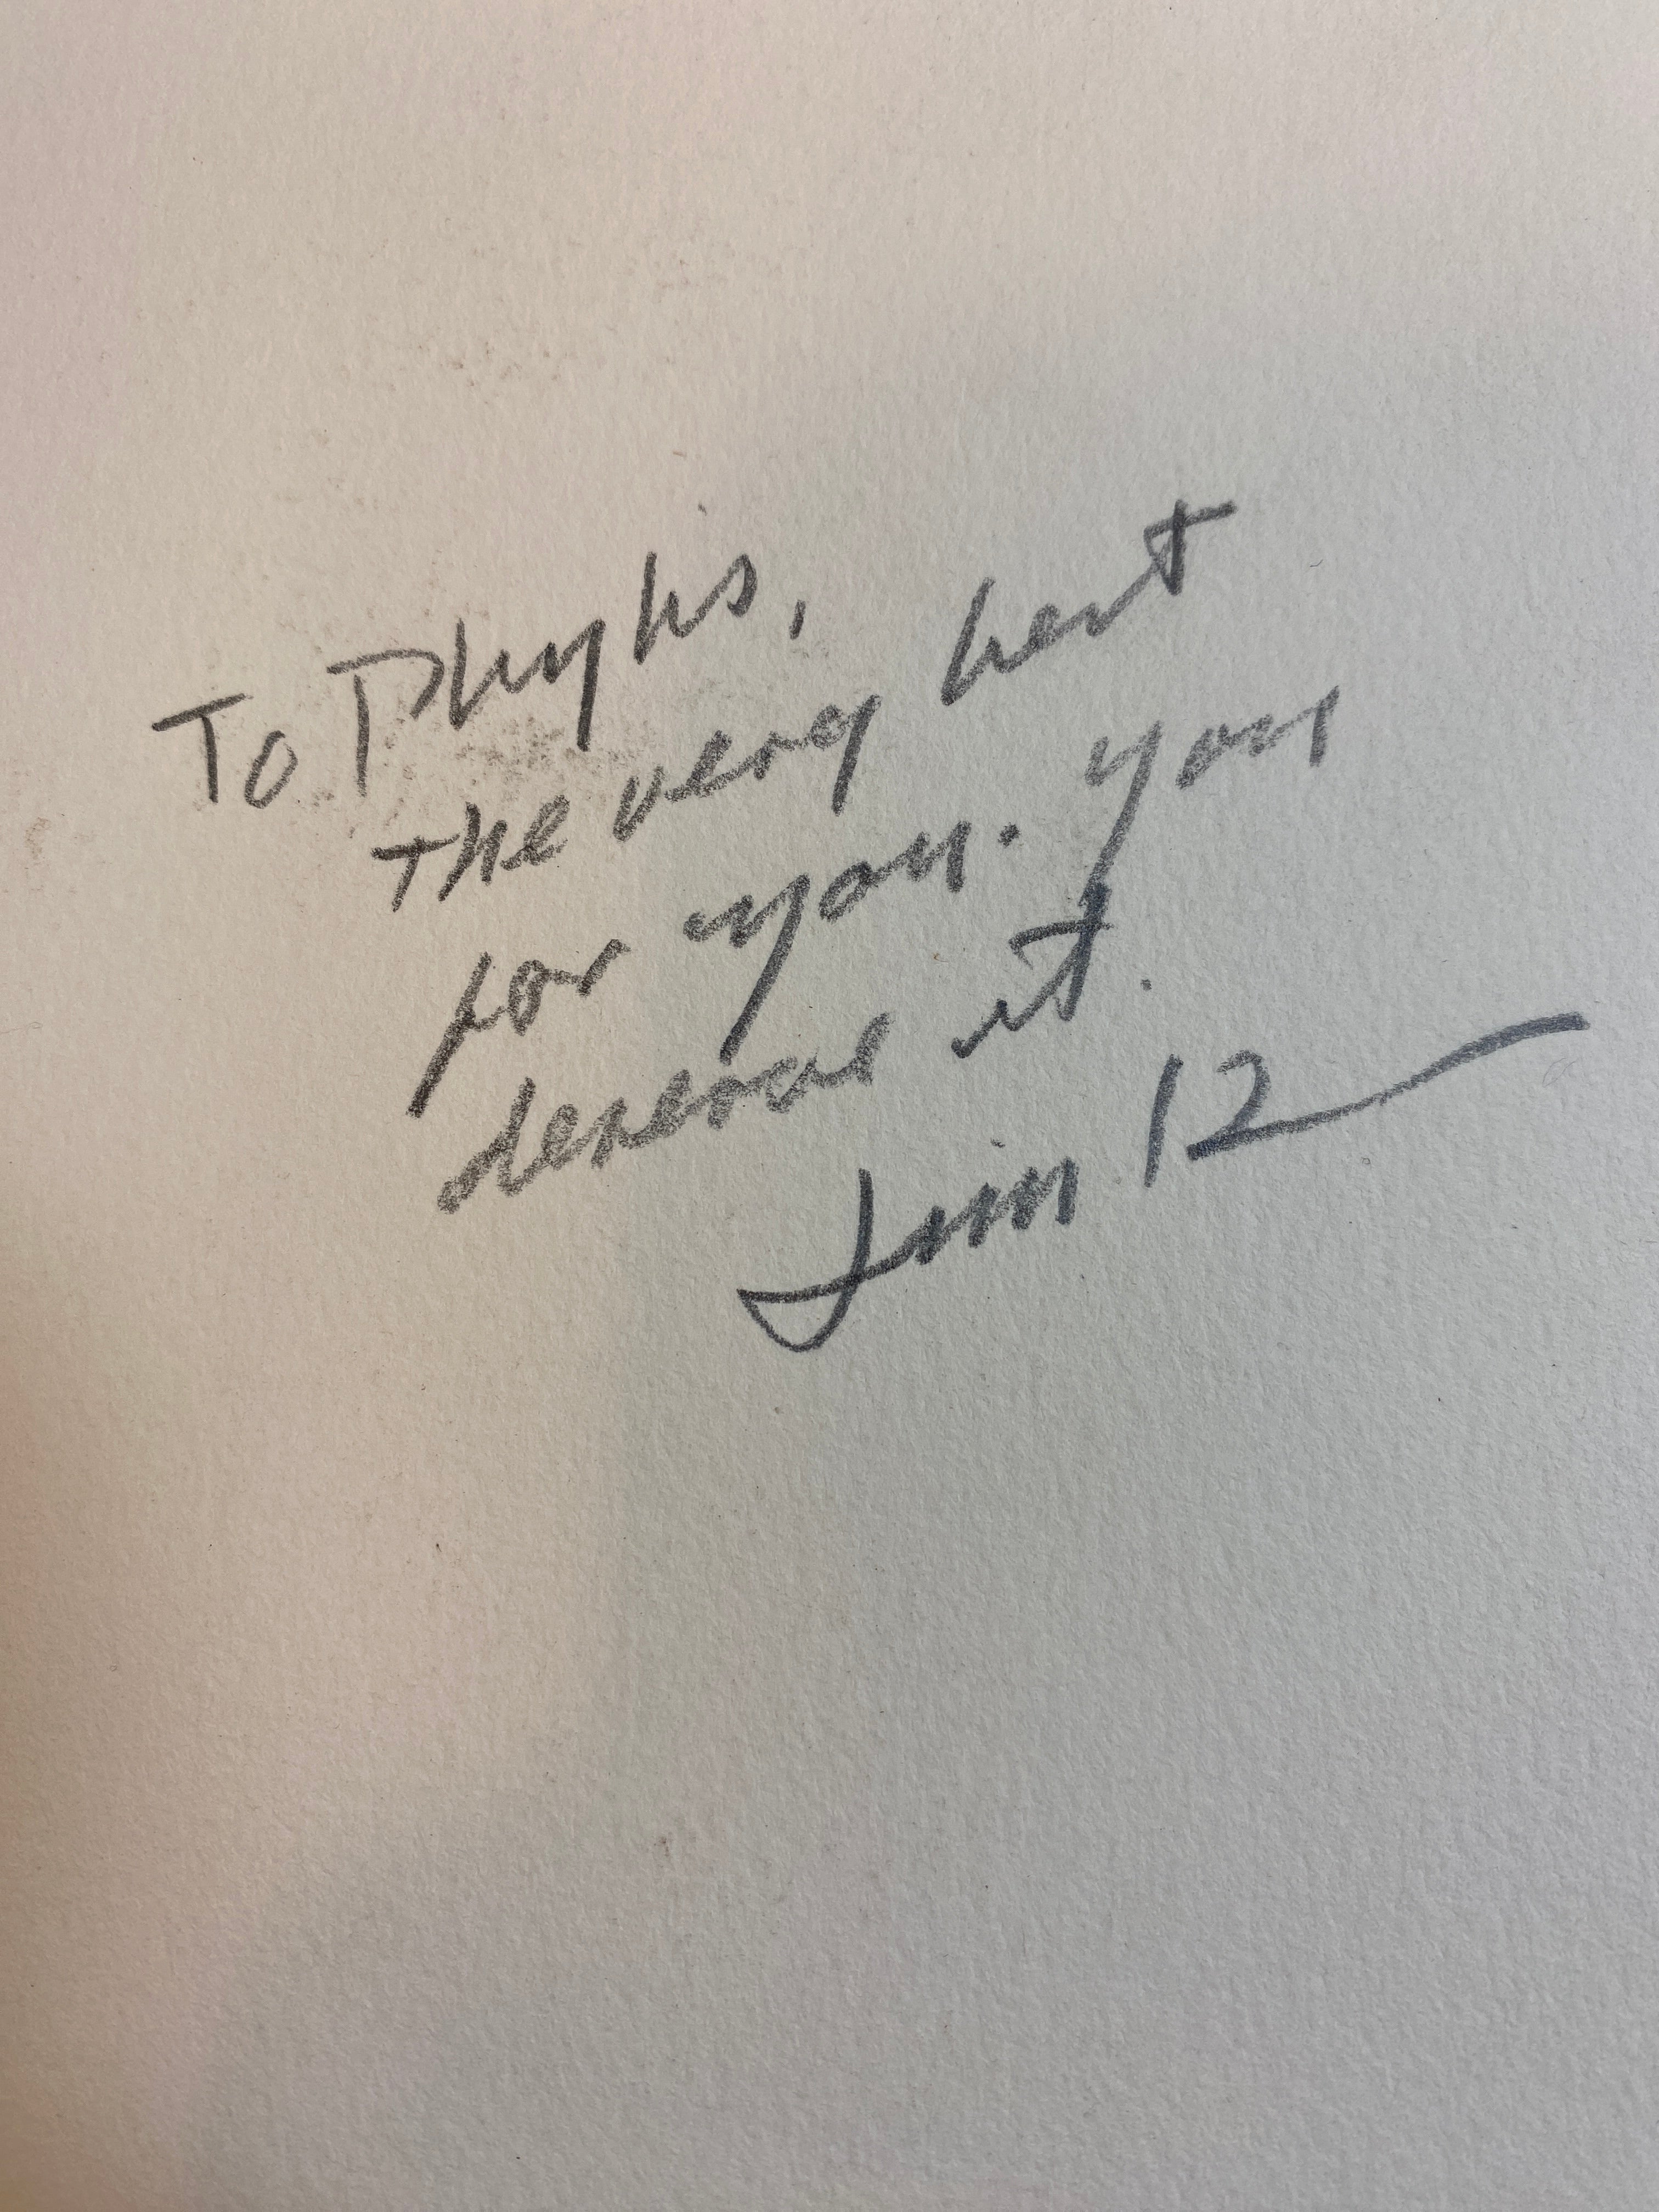 To Phyllis,
The very best
for you. You
deserve it.
Jim 12